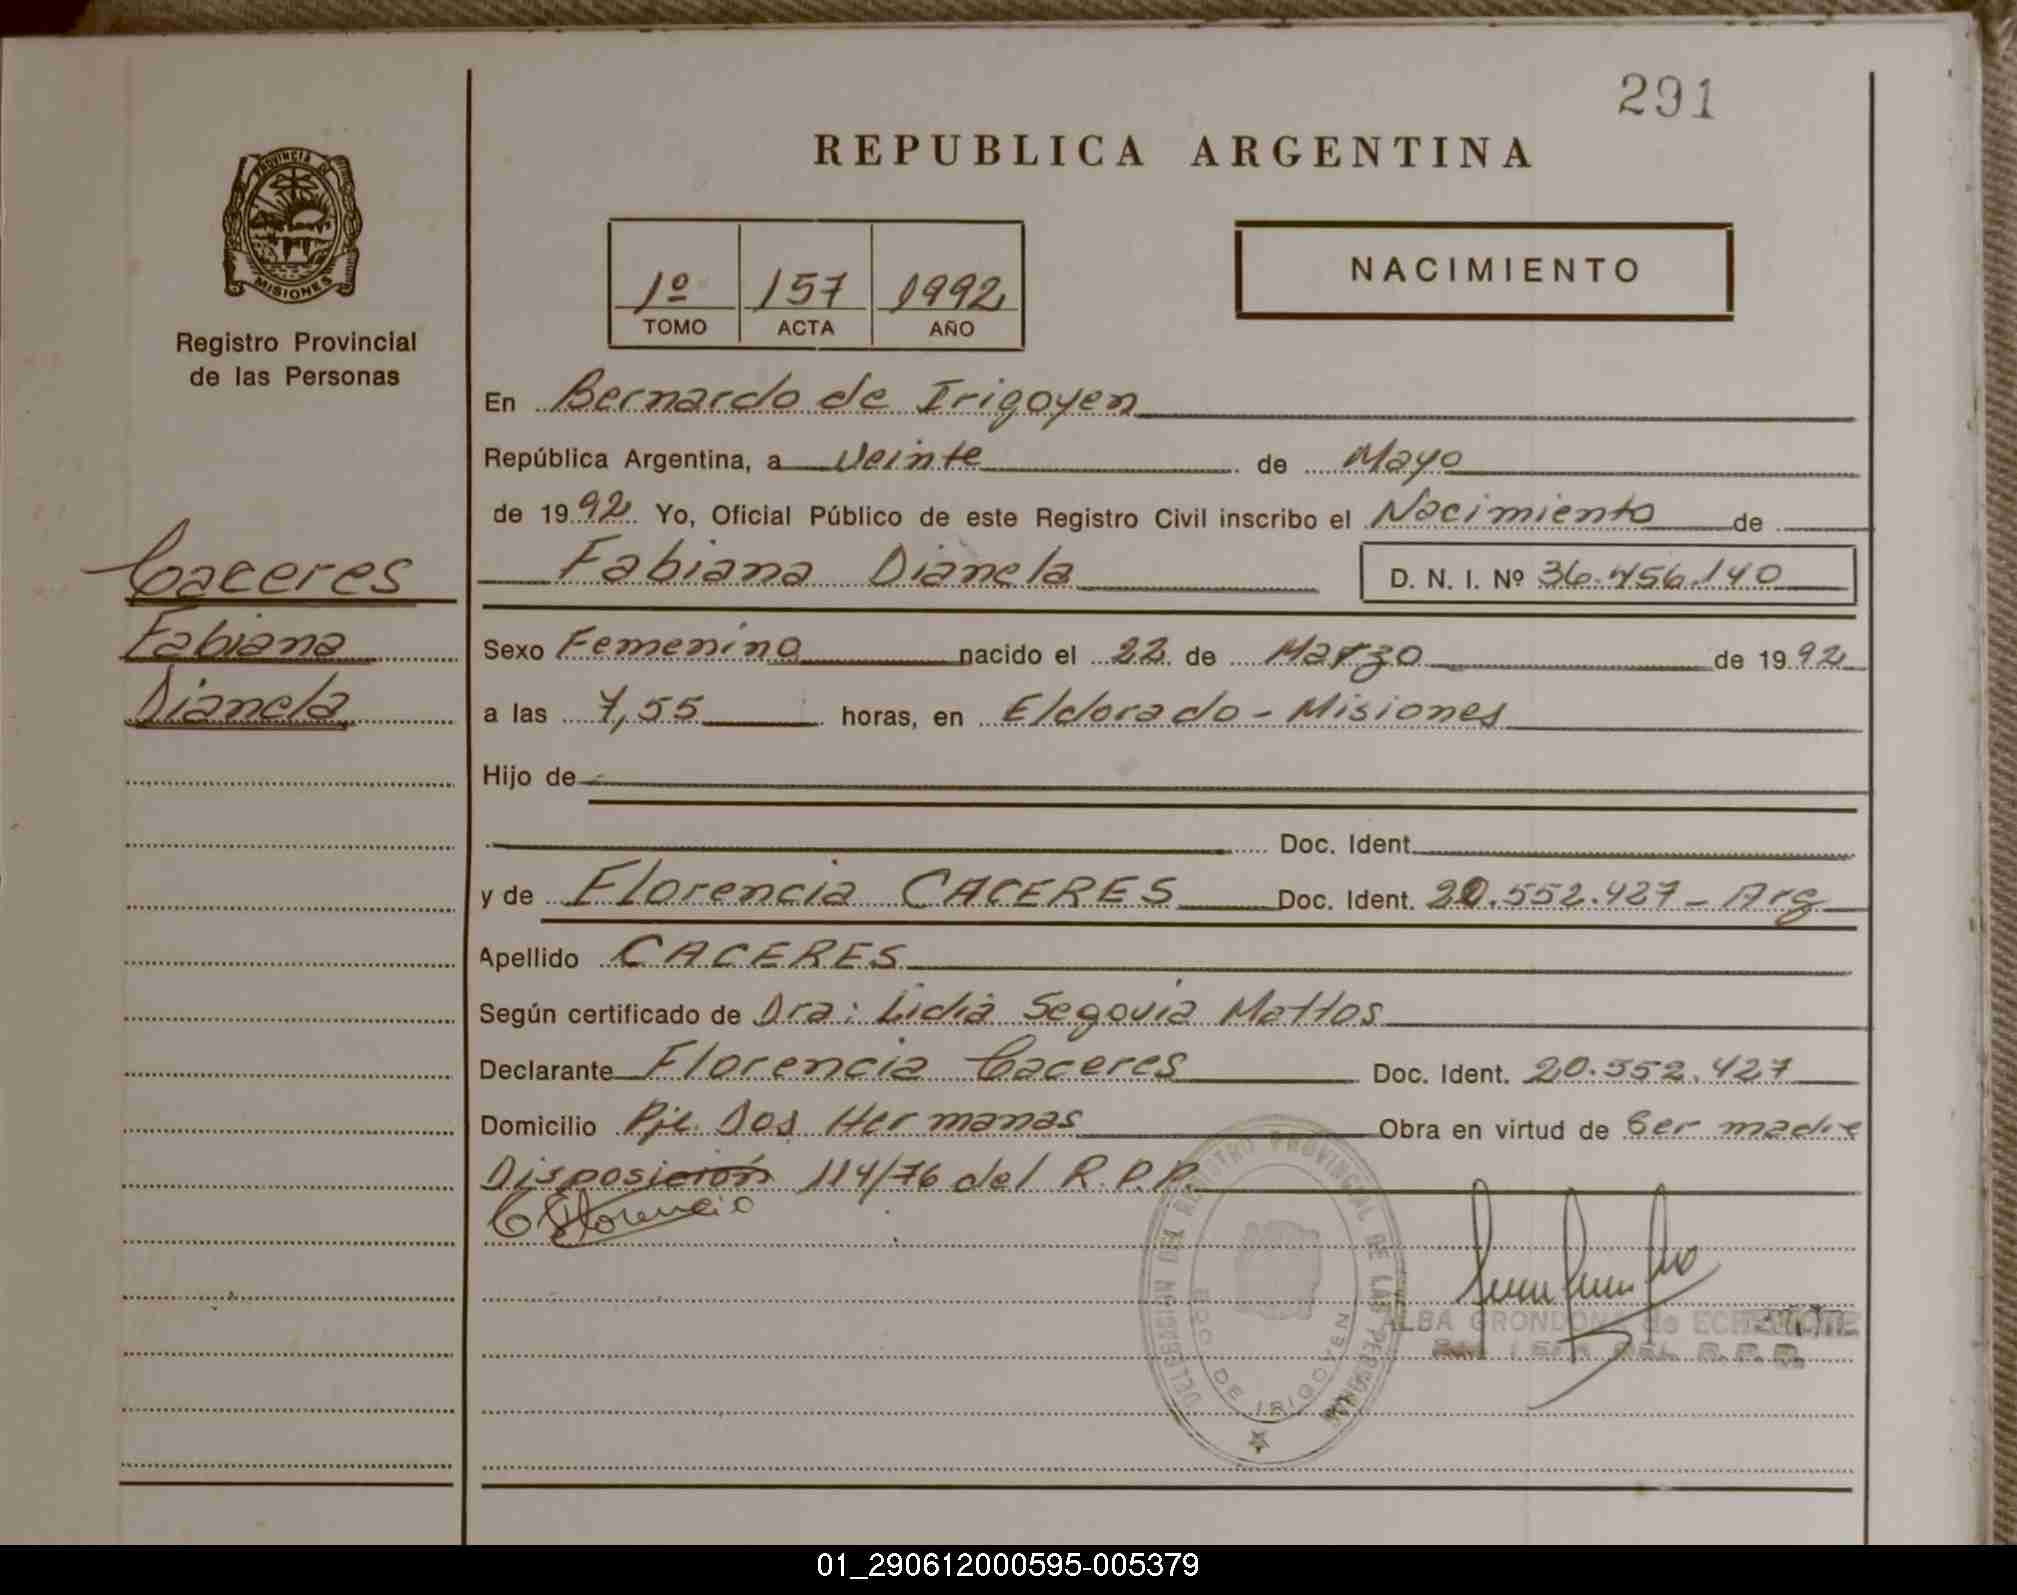 291
REPUBLICA ARGENTINA
PROVINCIA DE
MISIONES
Registro Provincial
de las Personas
1º 157 1992
TOMO ACTA AÑO
NACIMIENTO
En Bernardo de Irigoyen
República Argentina, a Veinte de Mayo
de 1992 Yo, Oficial Público de este Registro Civil inscribo el Nacimiento de
Fabiana Dianela D. N. I. Nº 36.456.140
Caceres
Fabiana
Dianela
Sexo Femenino nacido el 22 de Marzo de 1992
a las 7,55 horas, en Eldorado - Misiones
Hijo de
Doc. Ident.
y de Florencia CACERES Doc. Ident. 20.552.427 - Arg
Apellido CACERES
Según certificado de Dra: Lidia Segovia Mattos
Declarante Florencia Caceres Doc. Ident. 20.552.427
Domicilio Pje. Dos Hermanas Obra en virtud de Ser madre
Disposición 114/76 del R.P.P.
C Florencio
DELEGACION DEL REGISTRO PROVINCIAL DE LAS PERSONAS
BDO. DE IRIGOYEN
ALBA GRONDONA de
DEL R.P.P.
01_290612000595-005379